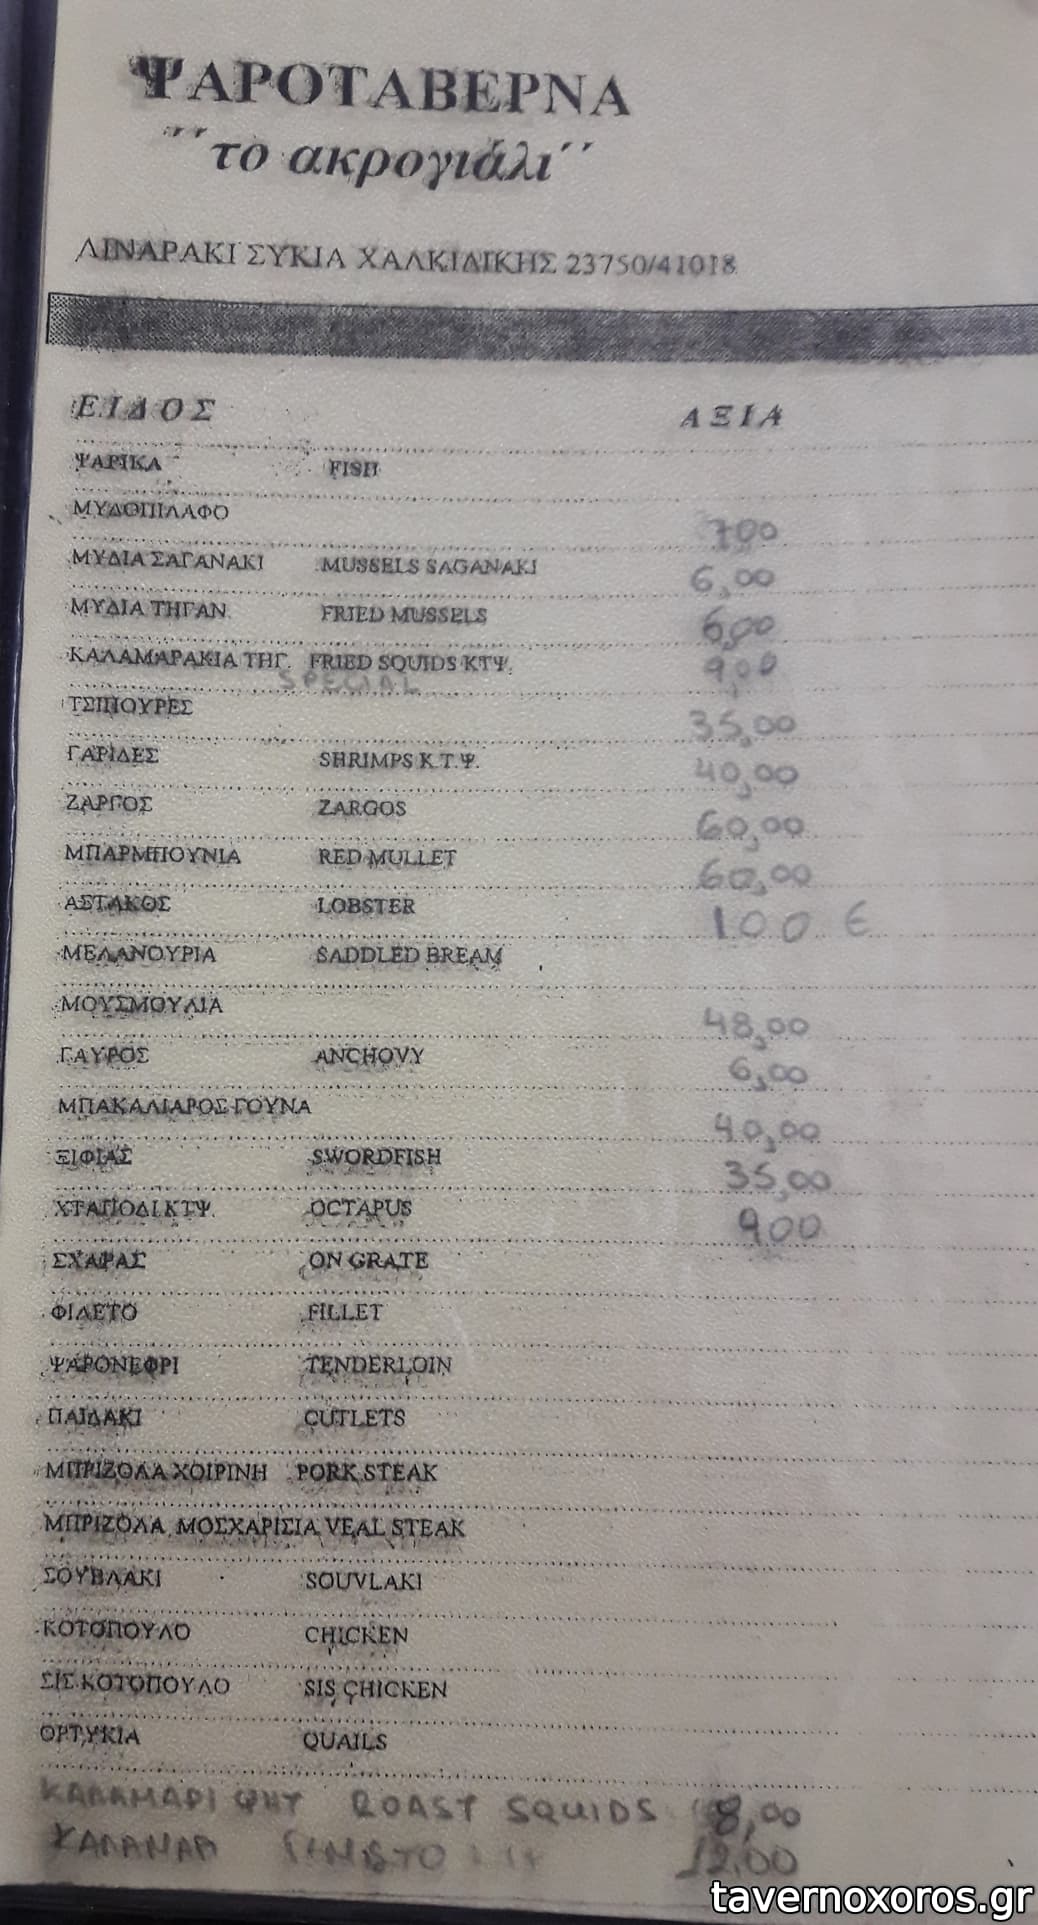 ΨΑΡΟΤΑΒΕΡΝΑ
΄΄το ακρογιάλι΄΄
ΛΙΝΑΡΑΚΙ ΣΥΚΙΑ ΧΑΛΚΙΔΙΚΗΣ 23750/41018
ΕΙΔΟΣ ΑΞΙΑ
ΨΑΡΙΚΑ FISH
ΜΥΔΟΠΙΛΑΦΟ 700
ΜΥΔΙΑ ΣΑΓΑΝΑΚΙ MUSSELS SAGANAKI 6,00
ΜΥΔΙΑ ΤΗΓΑΝ. FRIED MUSSELS 6,00
ΚΑΛΑΜΑΡΑΚΙΑ ΤΗΓ. FRIED SQUIDS ΚΤΨ. 900
SPECIAL
ΤΣΙΠΟΥΡΕΣ 35,00
ΓΑΡΙΔΕΣ SHRIMPS Κ.Τ.Ψ. 40,00
ΖΑΡΓΟΣ ZARGOS 60,00
ΜΠΑΡΜΠΟΥΝΙΑ RED MULLET 60,00
ΑΣΤΑΚΟΣ LOBSTER 100 €
ΜΕΛΑΝΟΥΡΙΑ SADDLED BREAM
ΜΟΥΣΜΟΥΛΙΑ 48,00
ΓΑΥΡΟΣ ANCHOVY 6,00
ΜΠΑΚΑΛΙΑΡΟΣ ΓΟΥΝΑ 40,00
ΞΙΦΙΑΣ SWORDFISH 35,00
ΧΤΑΠΟΔΙ ΚΤΨ. OCTAPUS 900
ΣΧΑΡΑΣ ON GRATE
ΦΙΛΕΤΟ FILLET
ΨΑΡΟΝΕΦΡΙ TENDERLOIN
ΠΑΙΔΑΚΙ CUTLETS
ΜΠΡΙΖΟΛΑ ΧΟΙΡΙΝΗ PORK STEAK
ΜΠΡΙΖΟΛΑ ΜΟΣΧΑΡΙΣΙΑ VEAL STEAK
ΣΟΥΒΛΑΚΙ SOUVLAKI
ΚΟΤΟΠΟΥΛΟ CHICKEN
ΣΙΣ ΚΟΤΟΠΟΥΛΟ SIS CHICKEN
ΟΡΤΥΚΙΑ QUAILS
ΚΑΛΑΜΑΡΙ ΨΗΤ ROAST SQUIDS 8,00
12,00
tavernoxoros.gr